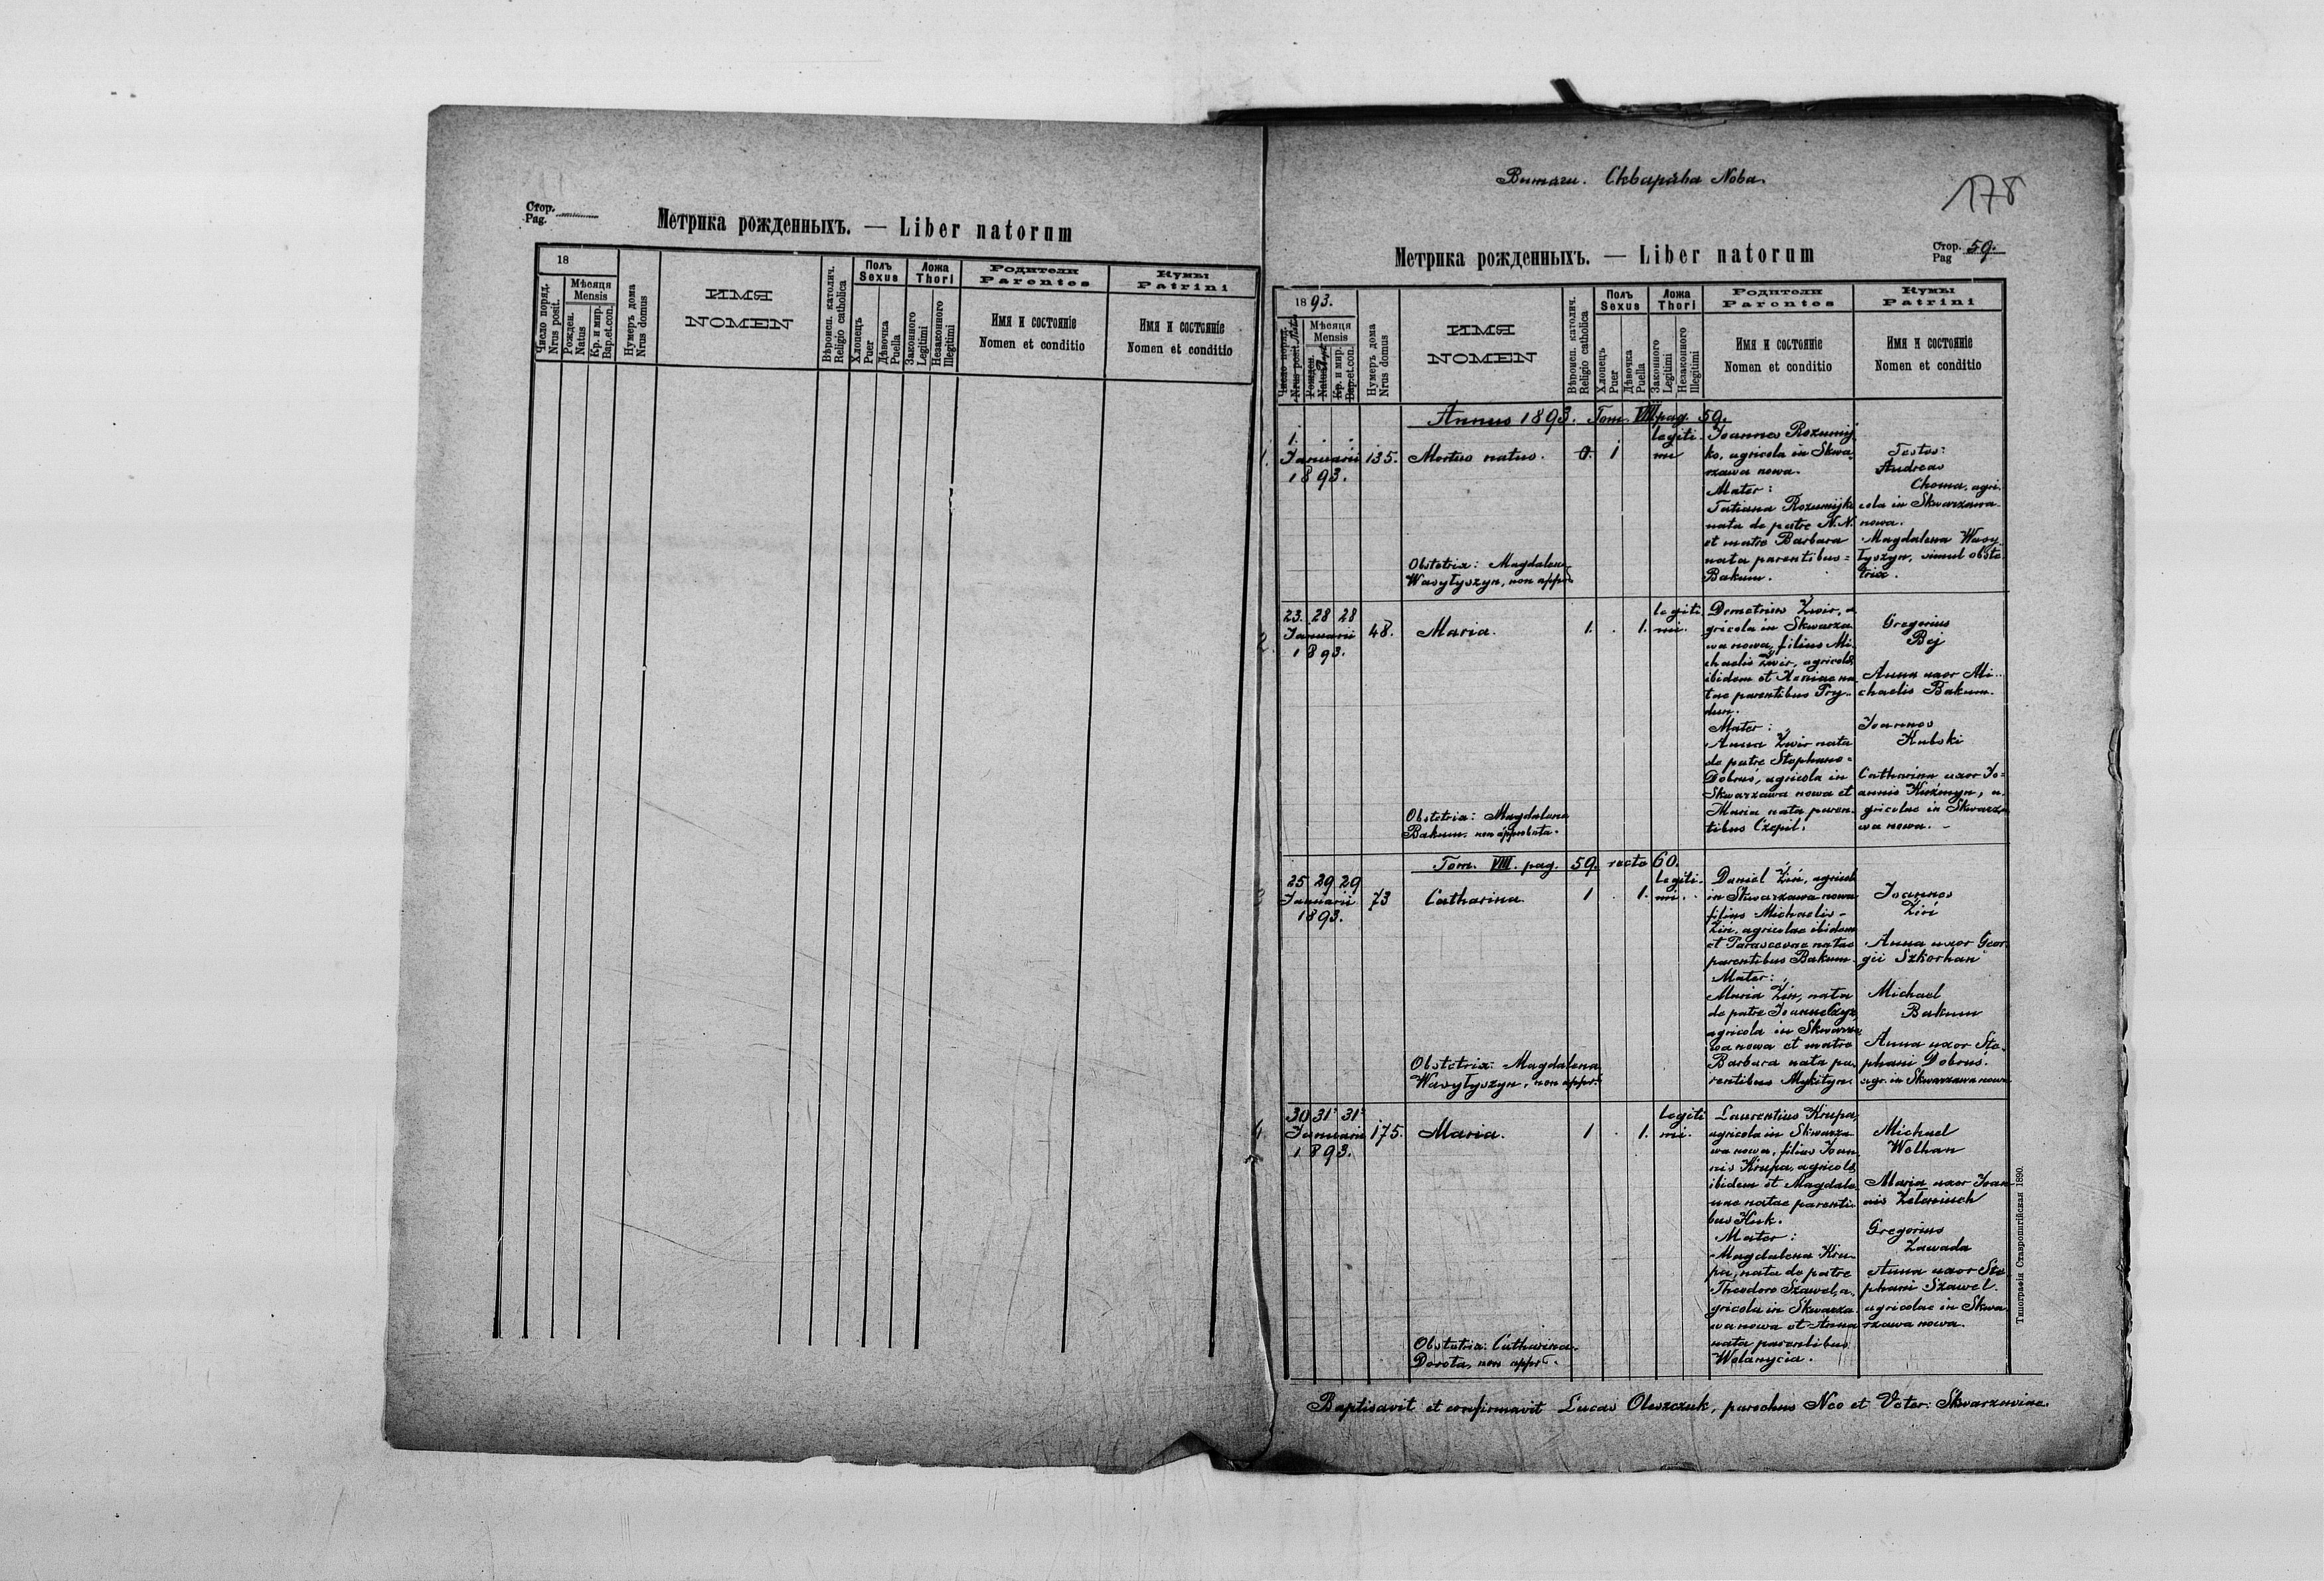 Стор.
Pag.
Метрика рожденныхъ. — Liber natorum
18
Число поряд.
Nrus posit.
Мѣсяця
Mensis
Рожден.
Natus
Кр. и мир.
Bap.et.con.
Нумеръ дома
Nrus domus
ИМЯ
NOMEN
Вѣроисп. католич.
Religio catholica
Полъ
Sexus
Хлопецъ
Puer
Дѣвочка
Puella
Ложа
Thori
Законного
Legitimi
Незаконного
Illegitimi
Родители
Parentes
Имя и состоянiе
Nomen et conditio
Кумы
Patrini
Имя и состоянiе
Nomen et conditio
Nova.
178
Метрика рожденныхъ. — Liber natorum
Стор. 59.
Pag
1893.
Число поряд.
Nrus posit.
Мѣсяця
Mensis
Рожден.
Natus
Кр. и мир.
Bap.et.con.
Нумеръ дома
Nrus domus
ИМЯ
NOMEN
Вѣроисп. католич.
Religio catholica
Полъ
Sexus
Хлопецъ
Puer
Дѣвочка
Puella
Ложа
Thori
Законного
Legitimi
Незаконного
Illegitimi
Родители
Parentes
Имя и состоянiе
Nomen et conditio
Кумы
Patrini
Имя и состоянiе
Nomen et conditio
Annus 1893. Tom. VIII pag. 59.
1.
1. . .
Januarii
1893.
135.
Mortuo natus.
0. 1
legiti
mi
Joannes Rozumij
ko, agricola in Skwa
rzawa nowa.
Mater:
Tatiana Rozumijko
nata de patre N. N.
et matre Barbara
nata parentibus =
Bakum.
Testes:
Andreas
Choma, agri
cola in Skwarzawa
nowa.
Magdalena Wasy
łyszyn, simul obste
trix.
Obstetrix: Magdalena
Wasyłyszyn, non appr.
2.
23. 28 28
Januarii
1893.
48.
Maria.
1. . 1.
legiti
mi.
Demetrius Zwir, a
gricola in Skwarza
wa nowa, filius Mi
chaelis Zwir, agricolae
ibidem et Xeniae na
tae parentibus Pry-
dun.
Mater:
Anna Zwir nata
de patre Stephano =
Dobruś, agricola in
Skwarzawa nowa et
Maria nata paren-
tibus Czepil.
Gregorius
Bej
Anna uxor Mi-
chaelis Bakum.
Joannes
Kubski
Catharina uxor Jo=
annis Kuźmyn, a-
gricolae in Skwarza
wa nowa. -
Obstetrix: Magdalena
Bakum, non approbata.
Tom. VIII. pag. 59. recto 60.
3
25 29 29
Januarii
1893.
73
Catharina.
1 . 1.
legiti-
mi.
Daniel Ziń, agricola
in Skwarzawa nowa
filius Michaelis -
Ziń, agricolae ibidem
et Parascevae natae
parentibus Bakum.
Mater:
Maria Ziń, nata
de patre Joanne
agricola in Skwarza
wa nowa et matre
Barbara nata pa-
rentibus Mykityn.
Joannes
Ziń
Anna uxor Geor
gii Szkorhan
Michael
Bakum
Anna uxor Ste-
phani Dobruś.
agr. in Skwarzawa nowa
Obstetrix: Magdalena
Wasyłyszyn, non appr.
4.
30 31 31
Januarii
1893.
175.
Maria.
1 . 1.
legiti
mi.
Laurentius Krupa,
agricola in Skwarza
wa nowa, filius Joan
nis Krupa, agricolae
ibidem et Magdale
nae natae parenti
bus Huk.
Mater:
Magdalena Kru-
pa, nata de patre
Theodoro Szawel, a-
gricola in Skwarza
wa nowa et Anna
nata parentibus
Wolanycia.
Michael
Wolhan
Maria uxor Joan
nis Zeleniuch
Gregorius
Zawada
Anna uxor Ste
phani Szawel.
agricolae in Skwa
rzawa nowa.
Obstetrix: Catharina
Dorota, non appr.
Baptisavit et confirmavit Lucas Oleszczuk, parochus Neo et Veter: Skwarzaviae.
Типографія Ставропигійская 1890.